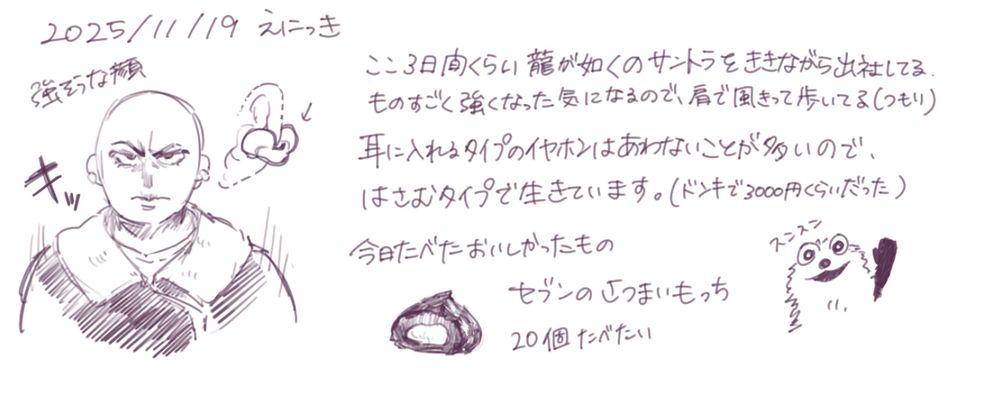 2025/11/19 えにっき
強そうな顔
キッ
ここ3日間くらい龍が如くのサントラをききながら出社してる.
ものすごく強くなった気になるので、肩で風きって歩いてる(つもり)
耳に入れるタイプのイヤホンはあわないことが多いので、
はさむタイプで生きています。(ドンキで3000円くらいだった)
今日たべたおいしかったもの
セブンのさつまいもっち
20個たべたい
ズンズン